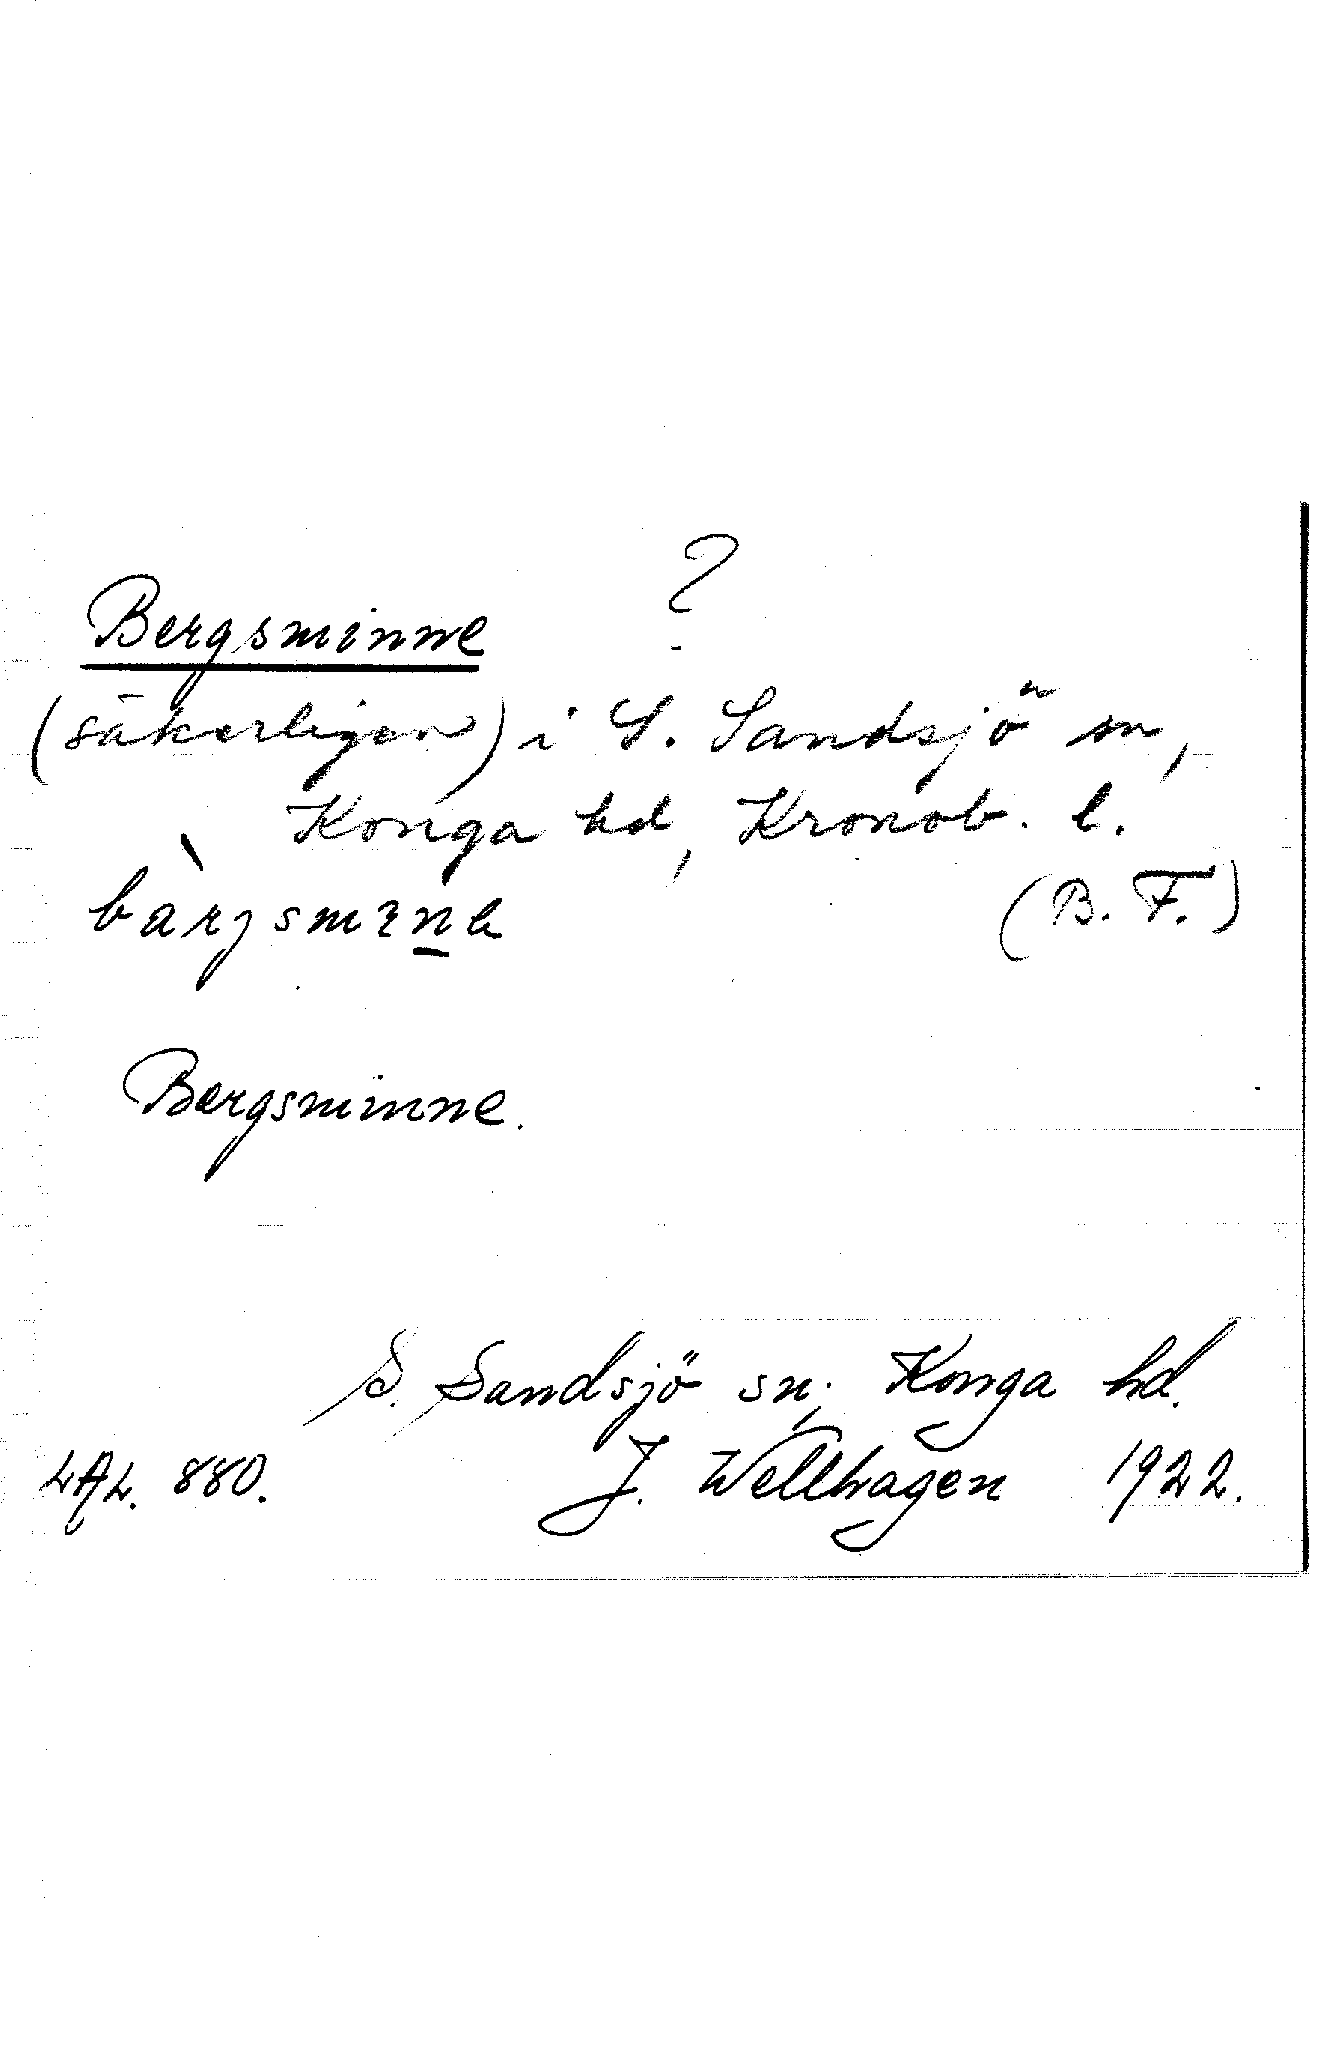 ?
Bergsminne
(säkerligen) i S. Sandsjö sn,
Konga hd, Kronob. l.
bàrjsmına (B. F.)
Bergsminne.
S. Sandsjö sn; Konga hd.
LAL. 880. J. Wellhagen 1922.